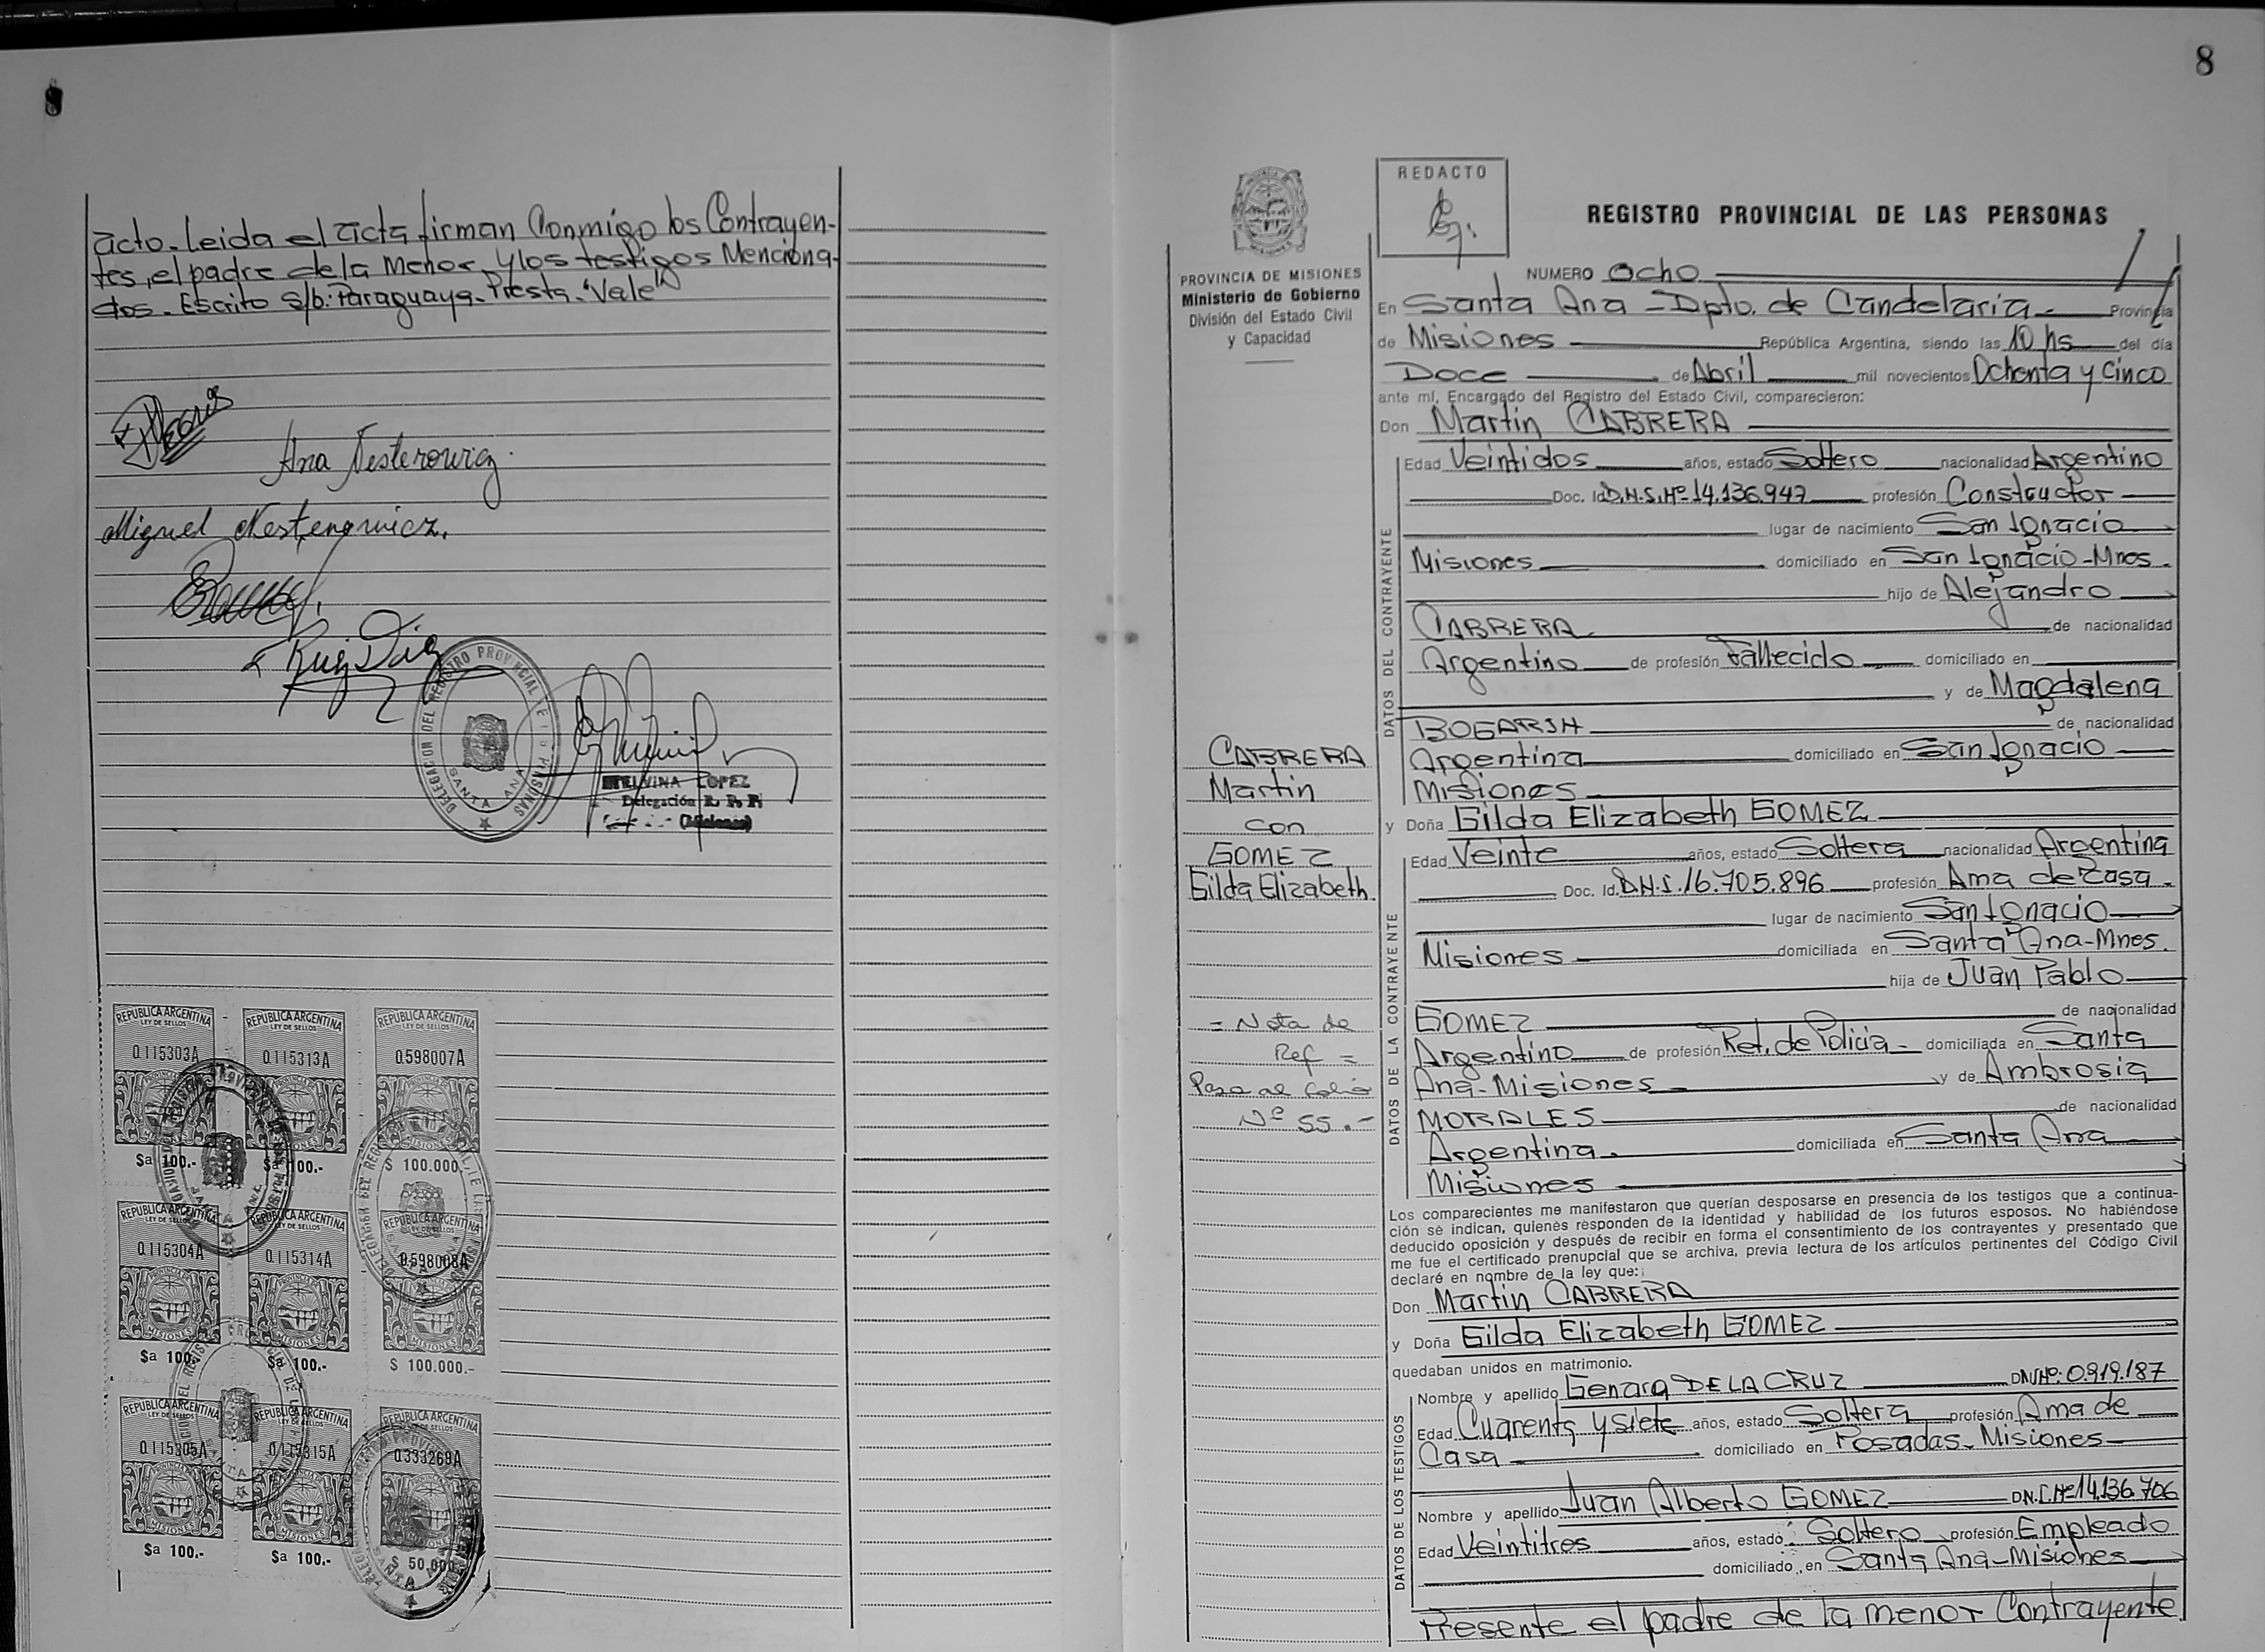 acto. Leida el acta firman Conmigo los Contrayen-
tes, el padre de la Menor, y los testigos Menciona-
dos. Escrito s/b: Paraguaya. Presta. "Vale"
Ana Nesterowicz.
Miguel Nesterowicz.
Ruiz Diaz
DELEGACION DEL REGISTRO PROVINCIAL DE LAS PERSONAS
SANTA ANA
ELVINA LOPEZ
Delegación R. P. P.
(Misiones)
REPUBLICA ARGENTINA
LEY DE SELLOS
0.115303A
MISIONES
$a 100.-
REPUBLICA ARGENTINA
LEY DE SELLOS
0.115313A
$a 100.-
REPUBLICA ARGENTINA
LEY DE SELLOS
0.598007A
MISIONES
$ 100.000.
REPUBLICA ARGENTINA
LEY DE SELLOS
0.115304A
MISIONES
$a 100.
REPUBLICA ARGENTINA
LEY DE SELLOS
0.115314A
MISIONES
$a 100.-
REPUBLICA ARGENTINA
LEY DE SELLOS
0.598008A
MISIONES
$ 100.000.-
REPUBLICA ARGENTINA
LEY DE SELLOS
0.115305A
MISIONES
$a 100.-
REPUBLICA ARGENTINA
LEY DE SELLOS
0.115315A
MISIONES
$a 100.-
REPUBLICA ARGENTINA
0.333269A
$ 50.000
8
PROVINCIA DE MISIONES
Ministerio de Gobierno
División del Estado Civil
y Capacidad
REDACTO
REGISTRO PROVINCIAL DE LAS PERSONAS
NUMERO Ocho
En Santa Ana - Dpto. de Candelaria - Provincia
de Misiones República Argentina, siendo las 10 hs del día
Doce de Abril mil novecientos Ochenta y Cinco
ante mí, Encargado del Registro del Estado Civil, comparecieron:
Don Martin CABRERA
DATOS DEL CONTRAYENTE
Edad Veintidos años, estado Soltero nacionalidad Argentino
Doc. Id. D.N.I. Nº 14.136.947 profesión Constructor
lugar de nacimiento San Ignacio
Misiones domiciliado en San Ignacio-Mnes.
hijo de Alejandro
CABRERA de nacionalidad
Argentino de profesión Fallecido domiciliado en
y de Magdalena
BOGARIN de nacionalidad
Argentina domiciliado en San Ignacio
Misiones
y Doña Gilda Elizabeth GOMEZ
DATOS DE LA CONTRAYENTE
Edad Veinte años, estado Soltera nacionalidad Argentina
Doc. Id. D.N.I. 16.705.896 profesión Ama de Casa.
lugar de nacimiento San Ignacio
Misiones domiciliada en Santa Ana-Mnes.
hija de Juan Pablo
GOMEZ de nacionalidad
Argentino de profesión Ret. de Policia - domiciliada en Santa
Ana-Misiones y de Ambrosia
MORALES de nacionalidad
Argentina domiciliada en Santa Ana
Misiones
CABRERA
Martin
con
GOMEZ
Gilda Elizabeth
= Nota de
Ref =
Pasa al folio
Nº 55.-
Los comparecientes me manifestaron que querían desposarse en presencia de los testigos que a continua-
ción se indican, quienes responden de la identidad y habilidad de los futuros esposos. No habiéndose
deducido oposición y después de recibir en forma el consentimiento de los contrayentes y presentado que
me fue el certificado prenupcial que se archiva, previa lectura de los artículos pertinentes del Código Civil
declaré en nombre de la ley que:
Don Martin CABRERA
y Doña Gilda Elizabeth GOMEZ
quedaban unidos en matrimonio.
DATOS DE LOS TESTIGOS
Nombre y apellido Genara DE LA CRUZ DNI Nº: 0.919.187
Edad Cuarenta y siete años, estado Soltera profesión Ama de
Casa domiciliado en Posadas-Misiones
Nombre y apellido Juan Alberto GOMEZ DN.I. Nº 14.136.706
Edad Veintitres años, estado Soltero profesión Empleado
domiciliado en Santa Ana-Misiones
Presente el padre de la menor Contrayente